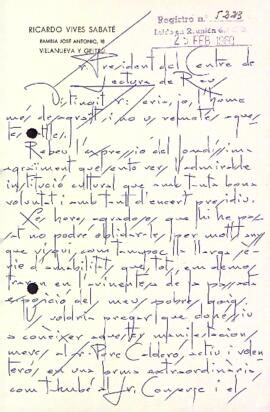 RICARDO VIVES SABATÉ
RAMBLA JOSÉ ANTONIO, 18
VILLANUEVA Y GELTRÚ
Registro n.º 5.228
Leído en Reunión
25 FEB 1960
Sr. President del Centre de
Lectura de Reus
Distingit Sr: seria, jo, l'home
més desgraciat si no us remetés aques-
tes ratlles.
Rebeu l'expressió del fondíssim
agraiment que sento vers l'admirable
institució cultural que amb tanta bona
voluntat i amb tant d'encert presidiu.
Les hores agradoses que hi he pas-
sat no podré oblidar-les per molt anys
que visqui, com tampoc la llarga sè-
rie d'amabilitats que, tots, em demos-
traren en l'avinentesa de la passada
exposició del meu pobre goig.
Us voldria pregar que donéssiu
a conèixer aquestes manifestacions
meves al Sr. Pere Calderó, actiu i volen-
terós en una forma extraordinària
com també al Sr. Conserge i el